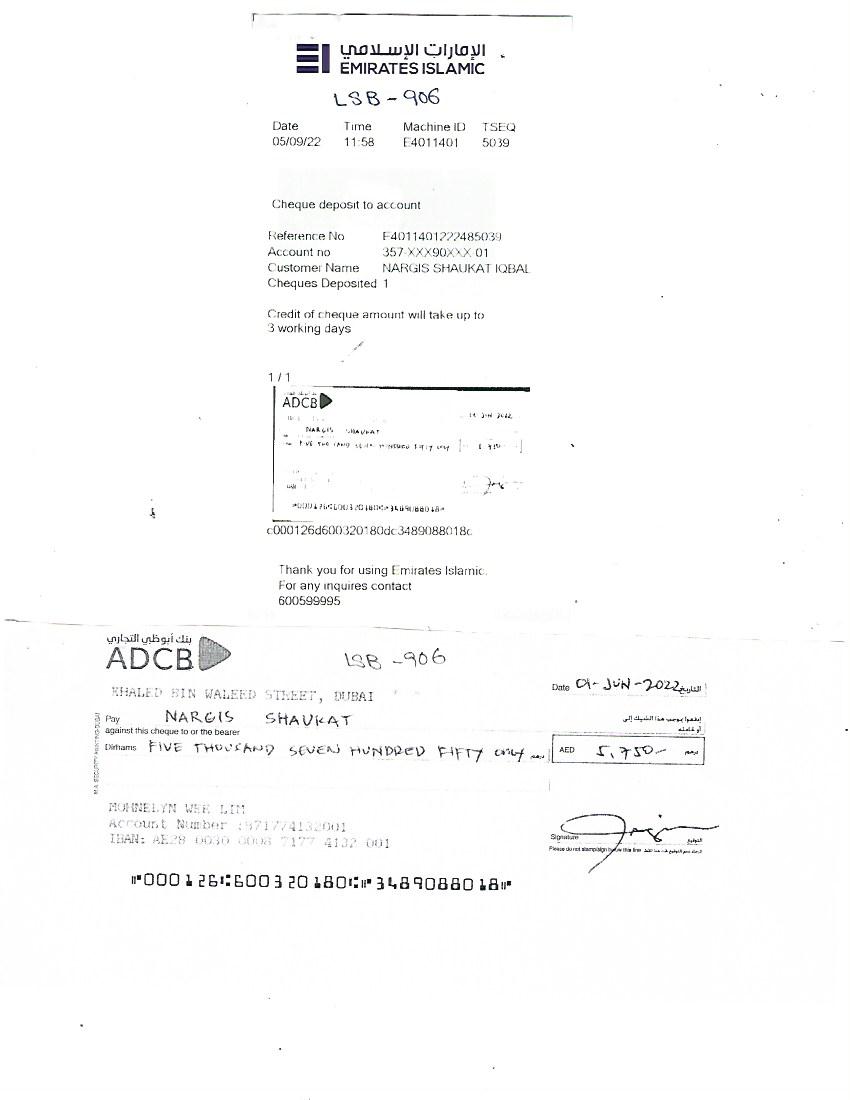 الإمارات الإسلامي
EMIRATES ISLAMIC
LSB - 906
Date Time Machine ID TSEQ
05/09/22 11:58 E4011401 5039
Cheque deposit to account
Reference No E4011401222485039
Account no 357-XXX90XXX-01
Customer Name NARGIS SHAUKAT IQBAL
Cheques Deposited 1
Credit of cheque amount will take up to
3 working days
1 / 1
ADCB
NARGIS SHAUKAT
c000126d600320180dc3489088018c
Thank you for using Emirates Islamic.
For any inquires contact
600599995
بنك أبوظبي التجاري
ADCB
LSB - 906
KHALED BIN WALEED STREET, DUBAI
Date 01-JUN-2022 التاريخ
Pay NARGIS SHAUKAT إدفعوا بموجب هذا الشيك إلى
against this cheque to or the bearer أو لحامله
Dirhams FIVE THOUSAND SEVEN HUNDRED FIFTY only درهم AED 5,750/- درهم
MOHNELYN WEE LIM
Account Number :971774132001
IBAN: AE28 0030 0008 7177 4132 001
Signature التوقيع
Please do not stamp/sign below this line
⑈000126⑆600320180⑆⑈3489088018⑈